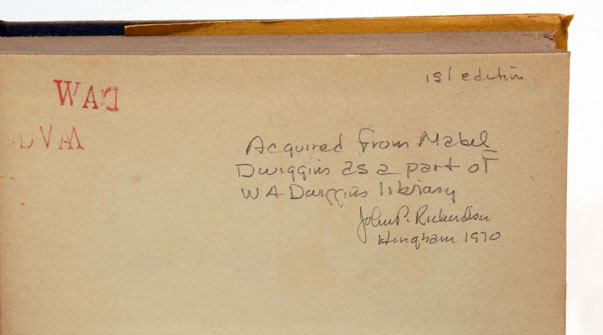 1st edition
WAD
WAD
Acquired from Mabel
Dwiggins as a part of
WA Dwiggins library
John P. Richardson
Hingham 1970